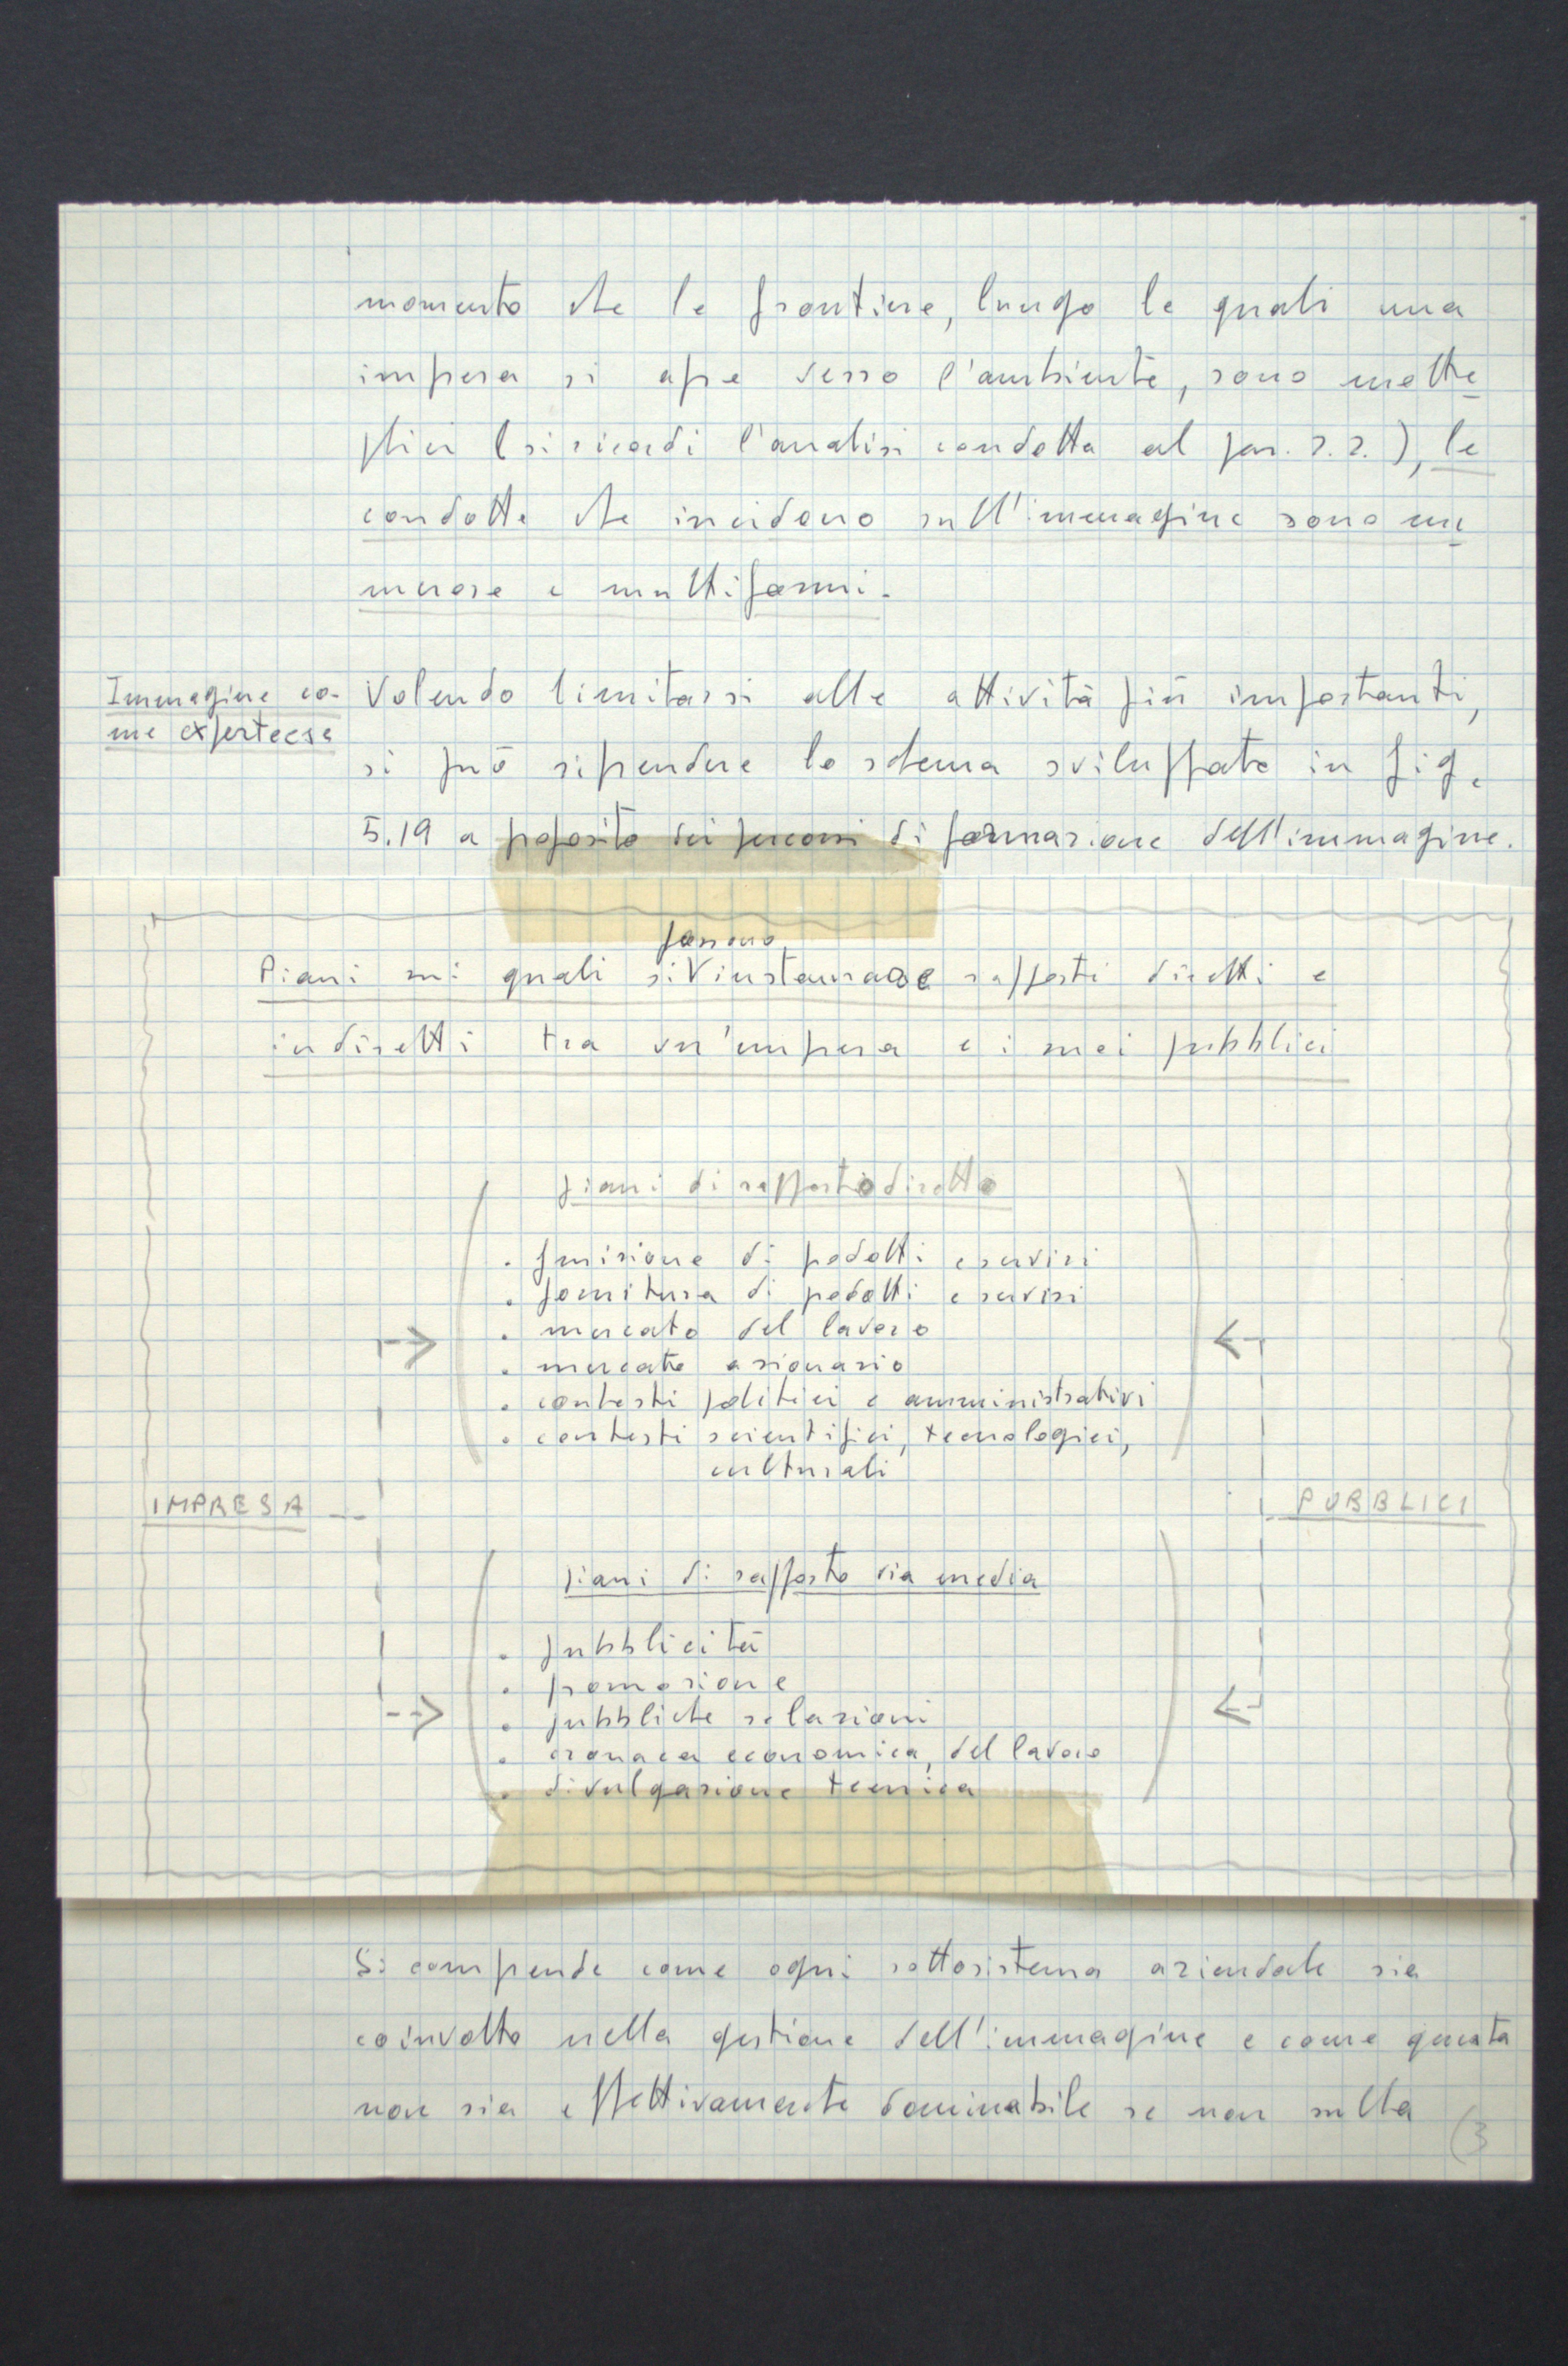 momento che le frontiere, lungo le quali una
impresa si apre verso l'ambiente, sono molte
plici (si ricordi l'analisi condotta al par. 2.2.), le
condotte che incidono sull'immagine sono nu
merose e multiformi.
Immagine co-
me expertecse
Volendo limitarsi alle attività più importanti,
si può riprendere lo schema sviluppato in fig.
5.19 a proposito dei percorsi di formazione dell'immagine.
possono
Piani sui quali si V instaurare rapporti diretti e
indiretti tra un'impresa e i suoi pubblici
piani di rapporto diretto
. fruizione di prodotti e servizi
. fornitura di prodotti e servizi
. mercato del lavoro
. mercato azionario
. contesti politici e amministrativi
. contesti scientifici, tecnologici,
culturali
IMPRESA
PUBBLICI
piani di rapporto via media
. pubblicità
. promozione
. pubbliche relazioni
. cronaca economica, del lavoro
. divulgazione tecnica
Si comprende come ogni sottosistema aziendale sia
coinvolto nella gestione dell'immagine e come questa
non sia effettivamente dominabile se non sulla
(3